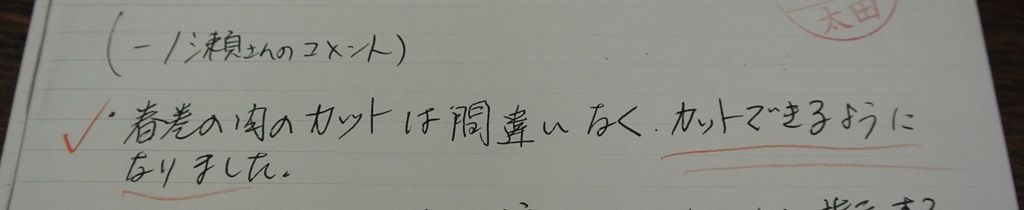 太田
(一ノ瀬さんのコメント)
・春巻の肉のカットは間違いなく、カットできるように
なりました。